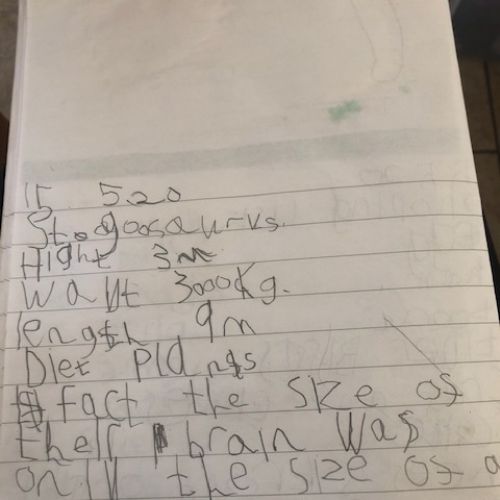 15 5.20
Stogoosaurus.
Hight 3m
Wayt 3000Kg.
length 9m
Diet Plangs
fact the size of
their brain was
only the size of a